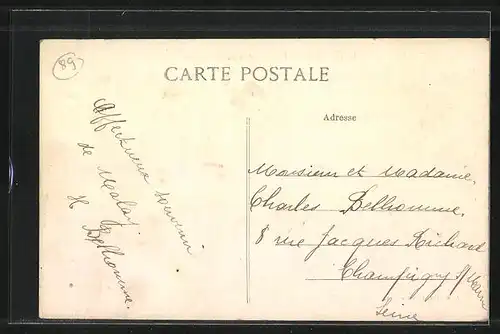 89
CARTE POSTALE
Adresse
Affectueux souvenir
de Malay
H Delhomme.
Monsieur et Madame
Charles Delhomme.
8 rue Jacques Richard
Champigny s/ Marn
Seine